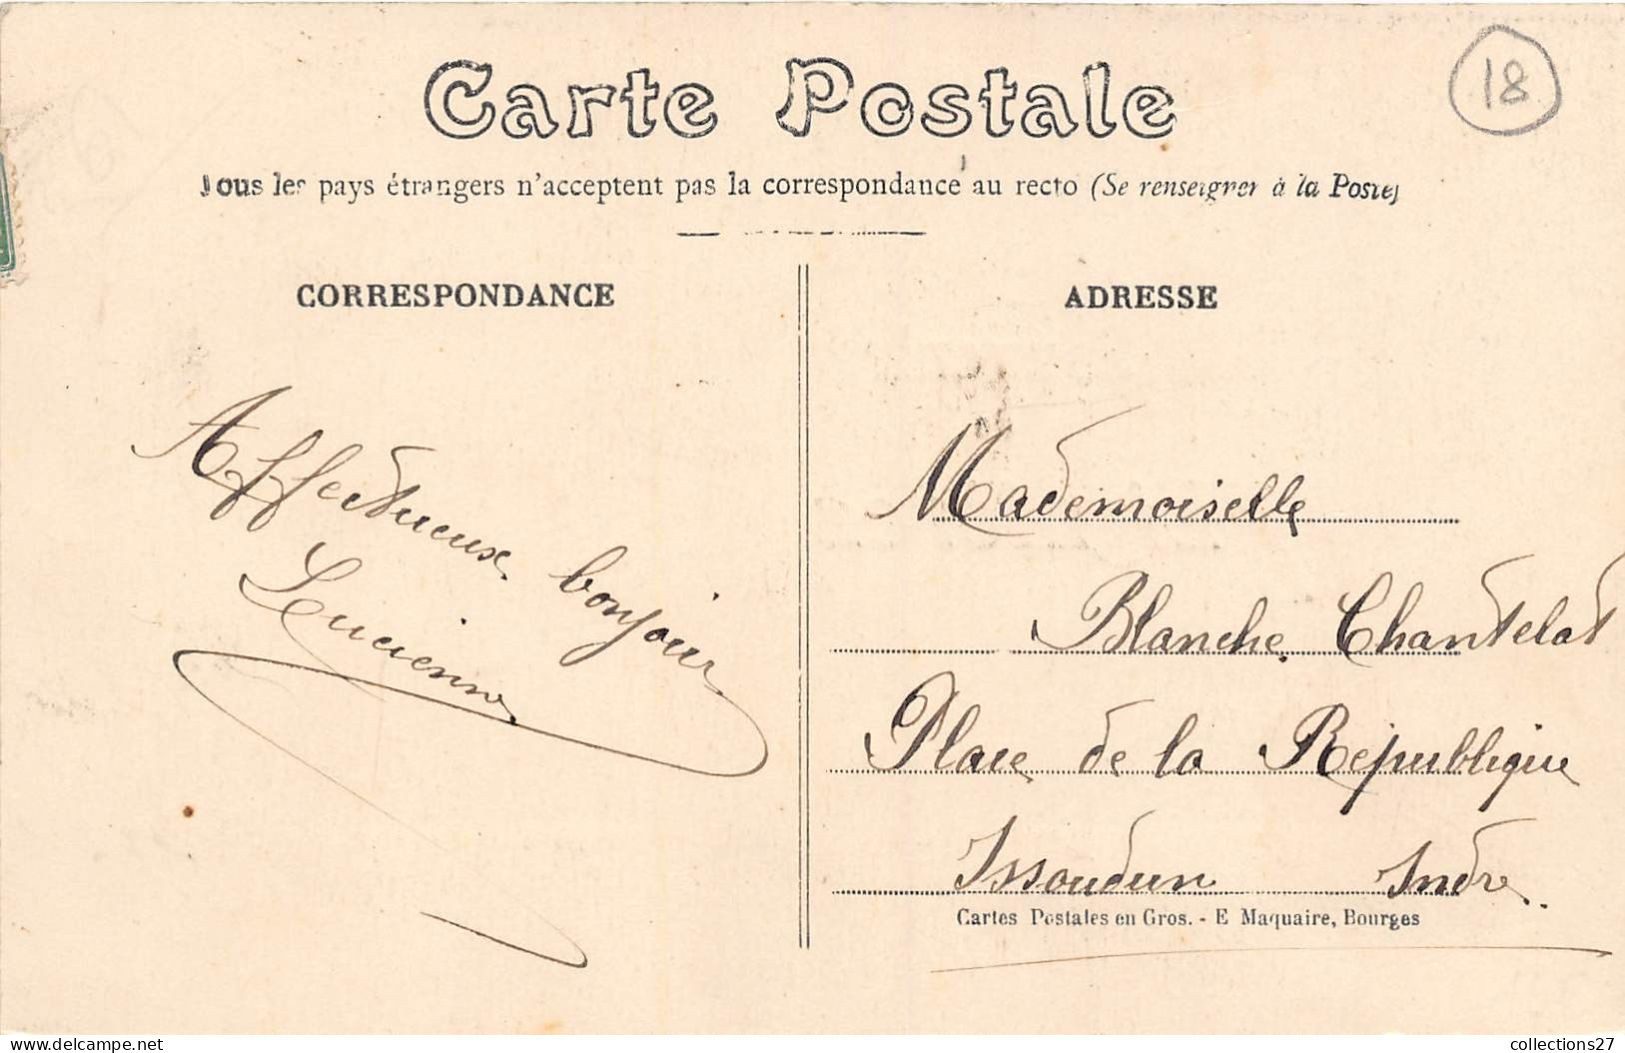 18
Carte Postale
Tous les pays étrangers n'acceptent pas la correspondance au recto (Se renseigner à la Poste)
CORRESPONDANCE
Affectueux bonjour
Lucienne
ADRESSE
Mademoiselle
Blanche Chantelat
Place de la République
Issoudun Indre.
Cartes Postales en Gros. - E Maquaire, Bourges
collections27